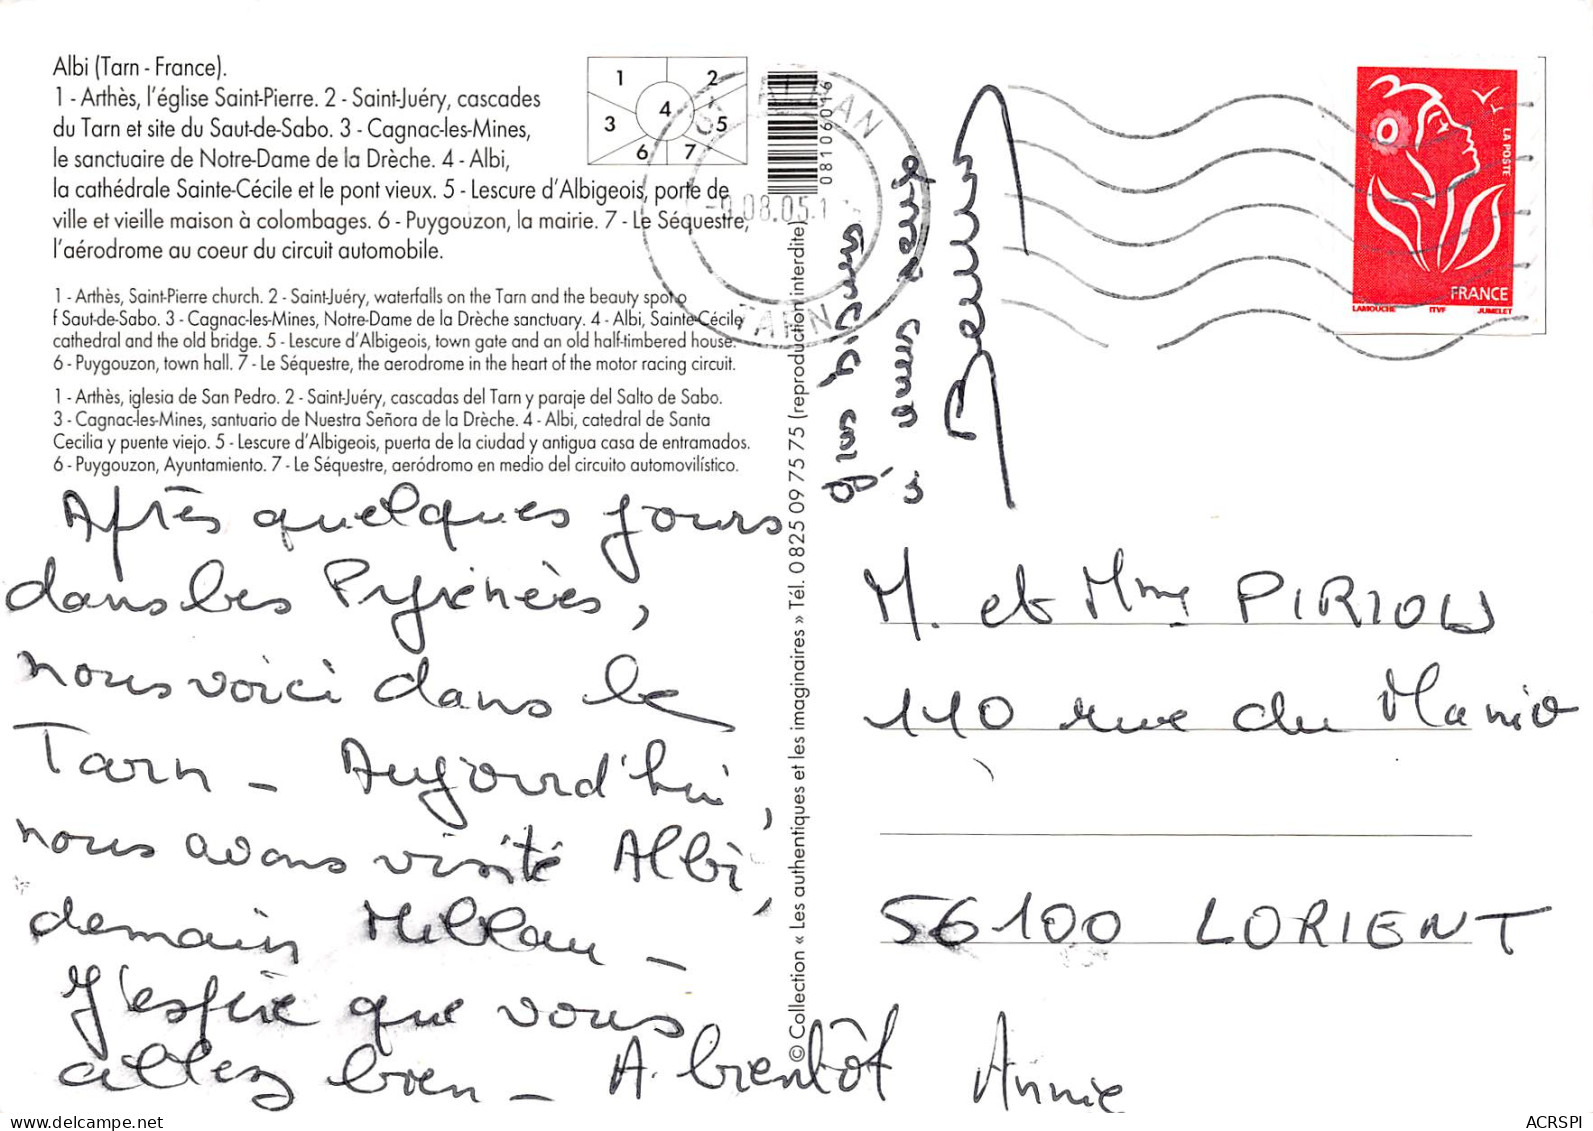 Albi (Tarn - France).
1 - Arthès, l'église Saint-Pierre. 2 - Saint-Juéry, cascades
du Tarn et site du Saut-de-Sabo. 3 - Cagnac-les-Mines,
le sanctuaire de Notre-Dame de la Drèche. 4 - Albi,
la cathédrale Sainte-Cécile et le pont vieux. 5 - Lescure d'Albigeois, porte de
ville et vieille maison à colombages. 6 - Puygouzon, la mairie. 7 - Le Séquestre,
l'aérodrome au coeur du circuit automobile.
1 - Arthès, Saint-Pierre church. 2 - Saint-Juéry, waterfalls on the Tarn and the beauty spot o
f Saut-de-Sabo. 3 - Cagnac-les-Mines, Notre-Dame de la Drèche sanctuary. 4 - Albi, Sainte-Cécile
cathedral and the old bridge. 5 - Lescure d'Albigeois, town gate and an old half-timbered house.
6 - Puygouzon, town hall. 7 - Le Séquestre, the aerodrome in the heart of the motor racing circuit.
1 - Arthès, iglesia de San Pedro. 2 - Saint-Juéry, cascadas del Tarn y paraje del Salto de Sabo.
3 - Cagnac-les-Mines, santuario de Nuestra Señora de la Drèche. 4 - Albi, catedral de Santa
Cecilia y puente viejo. 5 - Lescure d'Albigeois, puerta de la ciudad y antigua casa de entramados.
6 - Puygouzon, Ayuntamiento. 7 - Le Séquestre, aeródromo en medio del circuito automovilístico.
1 2
3 4 5
6 7
08106016
08.05.
TARN
Après quelques jours
dans les Pyrénées,
nous voici dans le
Tarn - Aujourd'hui,
nous avons visité Albi,
demain Millau -
J'espère que vous
allez bien - A bientôt Annie
© Collection « Les authentiques et les imaginaires » Tél. 0 825 09 75 75 (reproduction interdite)
gros bisous
à vous deux
LA POSTE
FRANCE
LAMOUCHE ITVF JUMELET
M. et Mme PIRIOU
110 rue du Manio
56100 LORIENT
ACRSPI